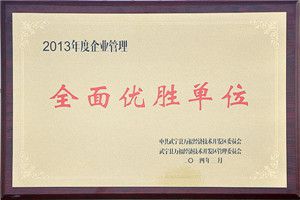 2013年度企业管理
全面优胜单位
中共武宁县万福经济技术开发区委员会
武宁县万福经济技术开发区管理委员会
〇一四年二月